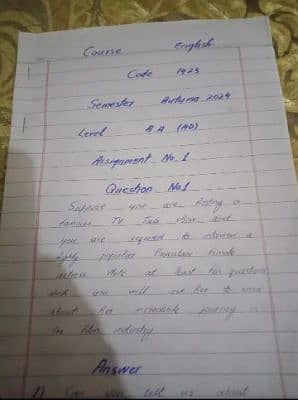 Course English
Code 1423
Semester Autumn 2024
Level B A (AD)
Assignment No. 1
Question No.1
Suppose you are hosting a
famous TV Talk show and
you are required to interview a
highly popular Pakistani female
actress. Write at least ten questions
that you will ask her to know
about her incredible journey in
the film industry
Answer
1) Can you tell us about